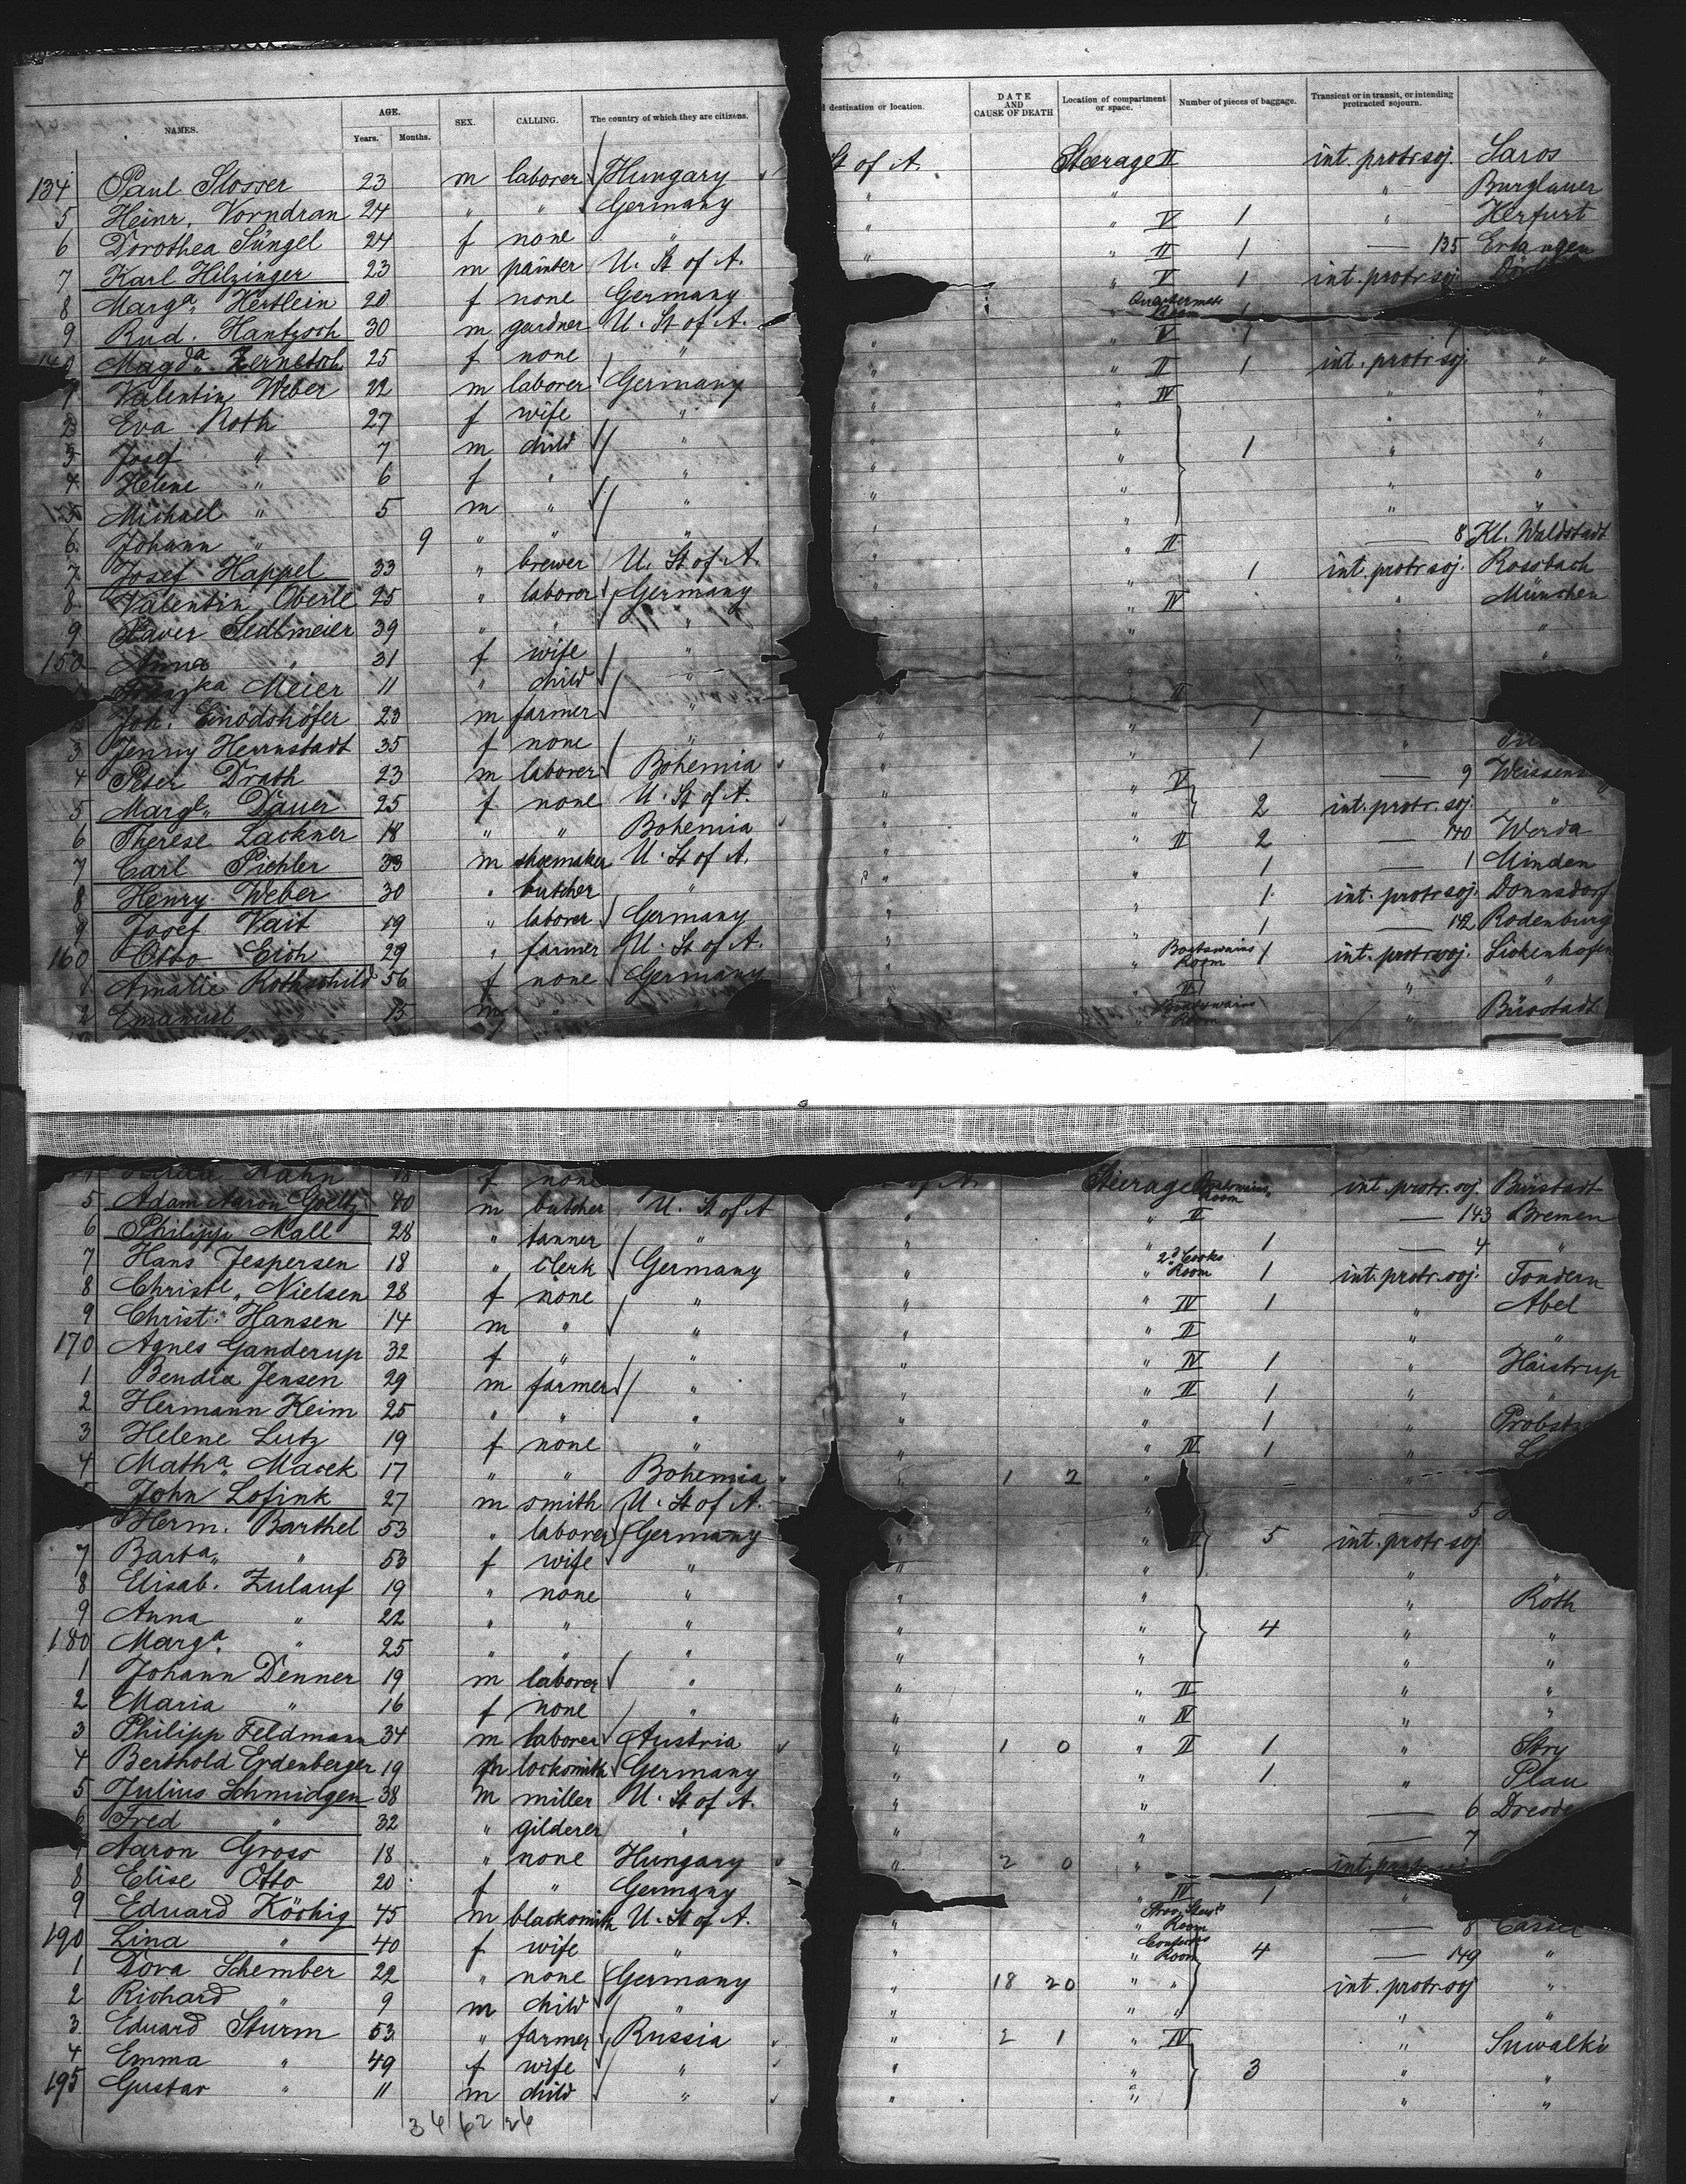 3
NAMES. AGE. Years. Months. SEX. CALLING. The country of which they are citizens. destination or location. DATE AND CAUSE OF DEATH Location of compartment or space. Number of pieces of baggage. Transient or in transit, or intending protracted sojourn.
134 Paul Slosser 23 m laborer Hungary St of A. Steerage II int. protr. soj. Saros
5 Heinr. Vorndran 24 " " Germany " " " Burglauer
6 Dorothea Süngel 24 f none " " " V 1 " Herfurt
7 Karl Hilzinger 23 m painter U. St of A. " " II 1 — 135 Erlangen
8 Marga. Hertlein 20 f none Germany " V 1 int. protr. soj.
9 Rud. Hantzsch 30 m gardner U. St of A. Room 1
Magda. Zernetsch 25 f none " " " V 1
Valentin Weber 22 m laborer Germany " " II 1 int. protr. soj. "
2 Eva Roth 27 f wife " " " IV " "
3 Josef " 7 m child " " " 1 " "
4 Helene " 6 f " " " " " "
5 Michael " 5 m " " " " " "
6 Johann " 9 " " " " " " "
7 Josef Happel 33 " brewer U. St of A. " " II — 8 Kl. Waldstadt
8 Valentin Oberle 25 " laborer Germany " " 1 int. protr. soj. Rossbach
9 Xaver Sedlmeier 39 " " " " IV " München
150 Anna " 31 f wife " " " "
Franzka Meier 11 " child " " " "
Joh. Einödshöfer 23 m farmer " " II 1
3 Jenny Herrnstadt 35 f none " " " 1 "
4 Peter Drath 23 m laborer Bohemia " " V — 9
5 Margt. Dauer 25 f none U. St of A. " " 2 int. protr. soj. "
6 Therese Lackner 18 " " Bohemia " " II 2 — 140 Werda
7 Carl Pichler 33 m shoemaker U. St of A. " " 1 — 1 Minden
8 Henry Weber 30 " butcher " " " 1 int. protr. soj. Donnsdorf
9 Josef Vait 19 " laborer Germany " " 1 — 142 Rodenburg
160 Otto Eich 29 " farmer U. St of A. " " Boatswains Room 1 int. protr. soj. Lickenhofen
1 Amalie Rothschild 56 f none Germany " " II " "
2 Emanuel " 15 m " " " Boatswains Room " Bürstadt
Hahn 18 f none of A. Steerage Boatswains Room int. protr. soj. Bürstadt
5 Adam Aaron Goeltz 40 m butcher U. St of A " " II — 143 Bremen
6 Philipp Mall 28 " tanner " " " 1 — 4 "
7 Hans Jespersen 18 " clerk Germany " " 2d Cooks Room 1 int. protr. soj. Tondern
8 Christe. Nielsen 28 f none " " " IV 1 " Abel
9 Christ. Hansen 14 m " " " " II " "
170 Agnes Ganderup 32 f " " " " IV 1 " Haistrup
1 Bendix Jensen 29 m farmer " " " II 1 " "
2 Hermann Keim 25 " " " " " 1 "
3 Helene Lutz 19 f none " " " IV 1 "
4 Matha. Marek 17 " " Bohemia " 1 2 " — "
John Lofink 27 m smith U. St of A. " " — 5
Herm. Barthel 53 " laborer Germany " " 5 int. protr. soj.
7 Barba. " 53 f wife " " " "
8 Elisab. Zulauf 19 " none " " " " Röth
9 Anna " 22 " " " " " 4 " "
180 Marga. " 25 " " " " " " "
1 Johann Denner 19 m laborer " " " II " "
2 Maria " 16 f none " " " IV " "
3 Philipp Feldmann 34 m laborer Austria " 1 0 " II 1 " Stry
4 Berthold Erdenberger 19 m locksmith Germany " " 1 " Plau
5 Julius Schmidgen 38 m miller U. St of A. " " — 6
6 Fred " 32 " gilderer " " " — 7
Aaron Gross 18 " none Hungary " 2 0 "
8 Elise Otto 20 f " Germany " IV 1
9 Eduard Köshig 45 m blacksmith U. St of A. " " Room — 8 Cassel
190 Lina " 40 f wife " " " Room 4 — 149 "
1 Dora Schember 22 " none Germany " 18 20 " " int. protr. soj "
2 Richard " 9 m child " " " " " "
3 Eduard Sturm 53 " farmer Russia " 2 1 " IV " Suwalki
4 Emma " 49 f wife " " " 3 " "
195 Gustav " 11 m child " " " " "
34 62 26